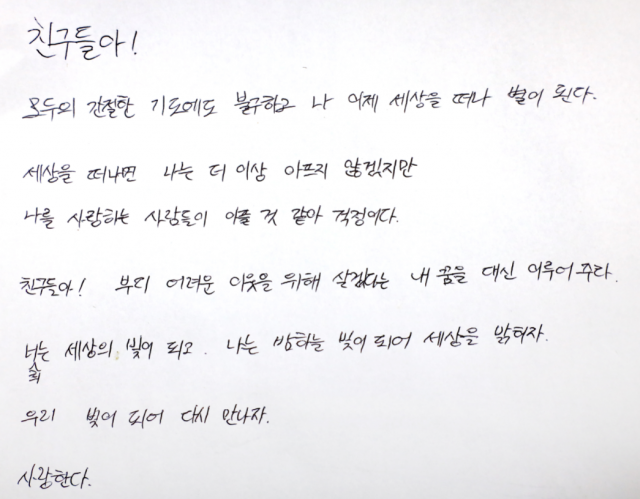 친구들아!
모두의 간절한 기도에도 불구하고 나 이제 세상을 떠나 별이 된다.
세상을 떠나면 나는 더 이상 아프지 않겠지만
나를 사랑하는 사람들이 아플 것 같아 걱정이다.
친구들아! 부디 어려운 이웃을 위해 살겠다는 내 꿈을 대신 이루어주라.
너희는 세상의 빛이 되고. 나는 밤하늘 빛이 되어 세상을 밝히자.
우리 빛이 되어 다시 만나자.
사랑한다.